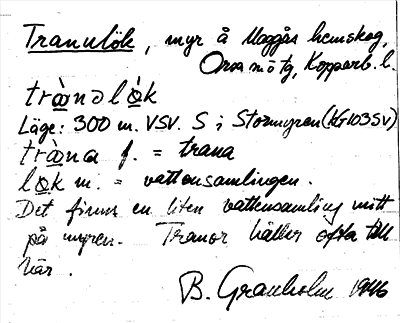 Tranulök, myr å Maggås hemskog,
Orsa mötg, Kopparb. l.
trànalòk
Läge: 300 m. VSV. S i Stormyren (KG103SV)
tràna f. = trana
lòk m. = vattensamlingen.
Det finns en liten vattensamling mitt
på myren. Tranor håller ofta till
här.
B. Granholm 1946